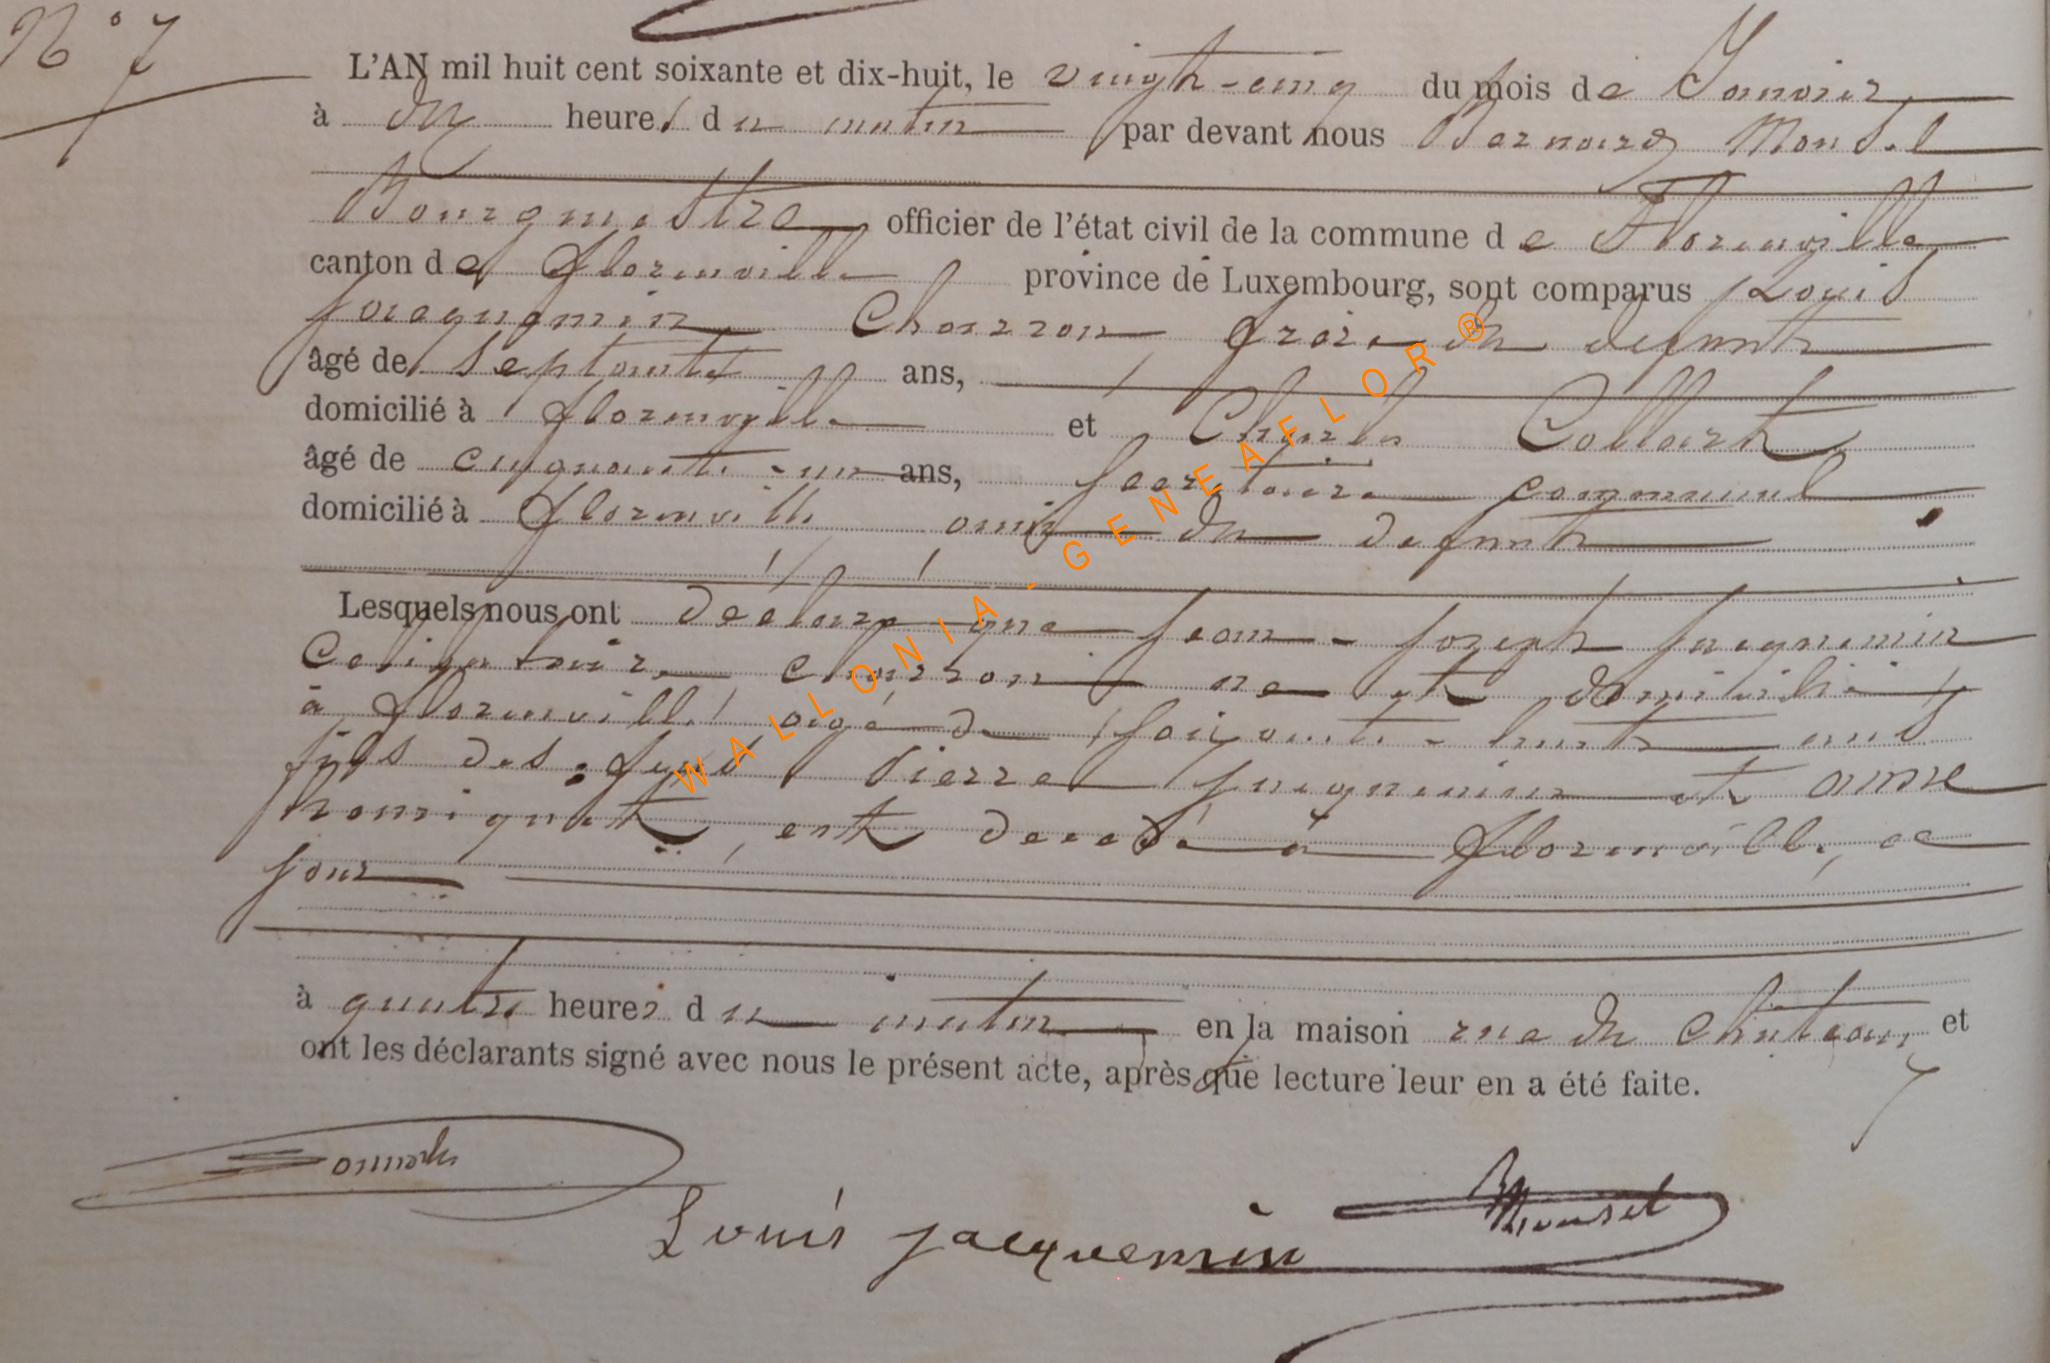 N° 7
L'AN mil huit cent soixante et dix-huit, le vingt-cinq du mois de Janvier
à dix heures du matin par devant nous Bernard Monsel
Bourgmestre officier de l'état civil de la commune de Florenville
canton de Florenville province de Luxembourg, sont comparus Louis
Jacquemin Charron, frère du defunt
âgé de septante ans,
domicilié à Florenville et Charles Collart
âgé de cinquante-un ans, Secretaire communal
domicilié à Florenville ami du defunt
Lesquels nous ont déclaré que Jean-Joseph Jacquemin
Celibataire charron né et domicilié
à Florenville, agé de soixante-huit ans
fils des feus Pierre Jacquemin et anne
est decedé à Florenville, ce
jour
à quatre heures du matin en la maison rue du Château, et
ont les déclarants signé avec nous le présent acte, après que lecture leur en a été faite.
Louis jacquemin
Monsel
WALLONIA - GENEAFLOR ®